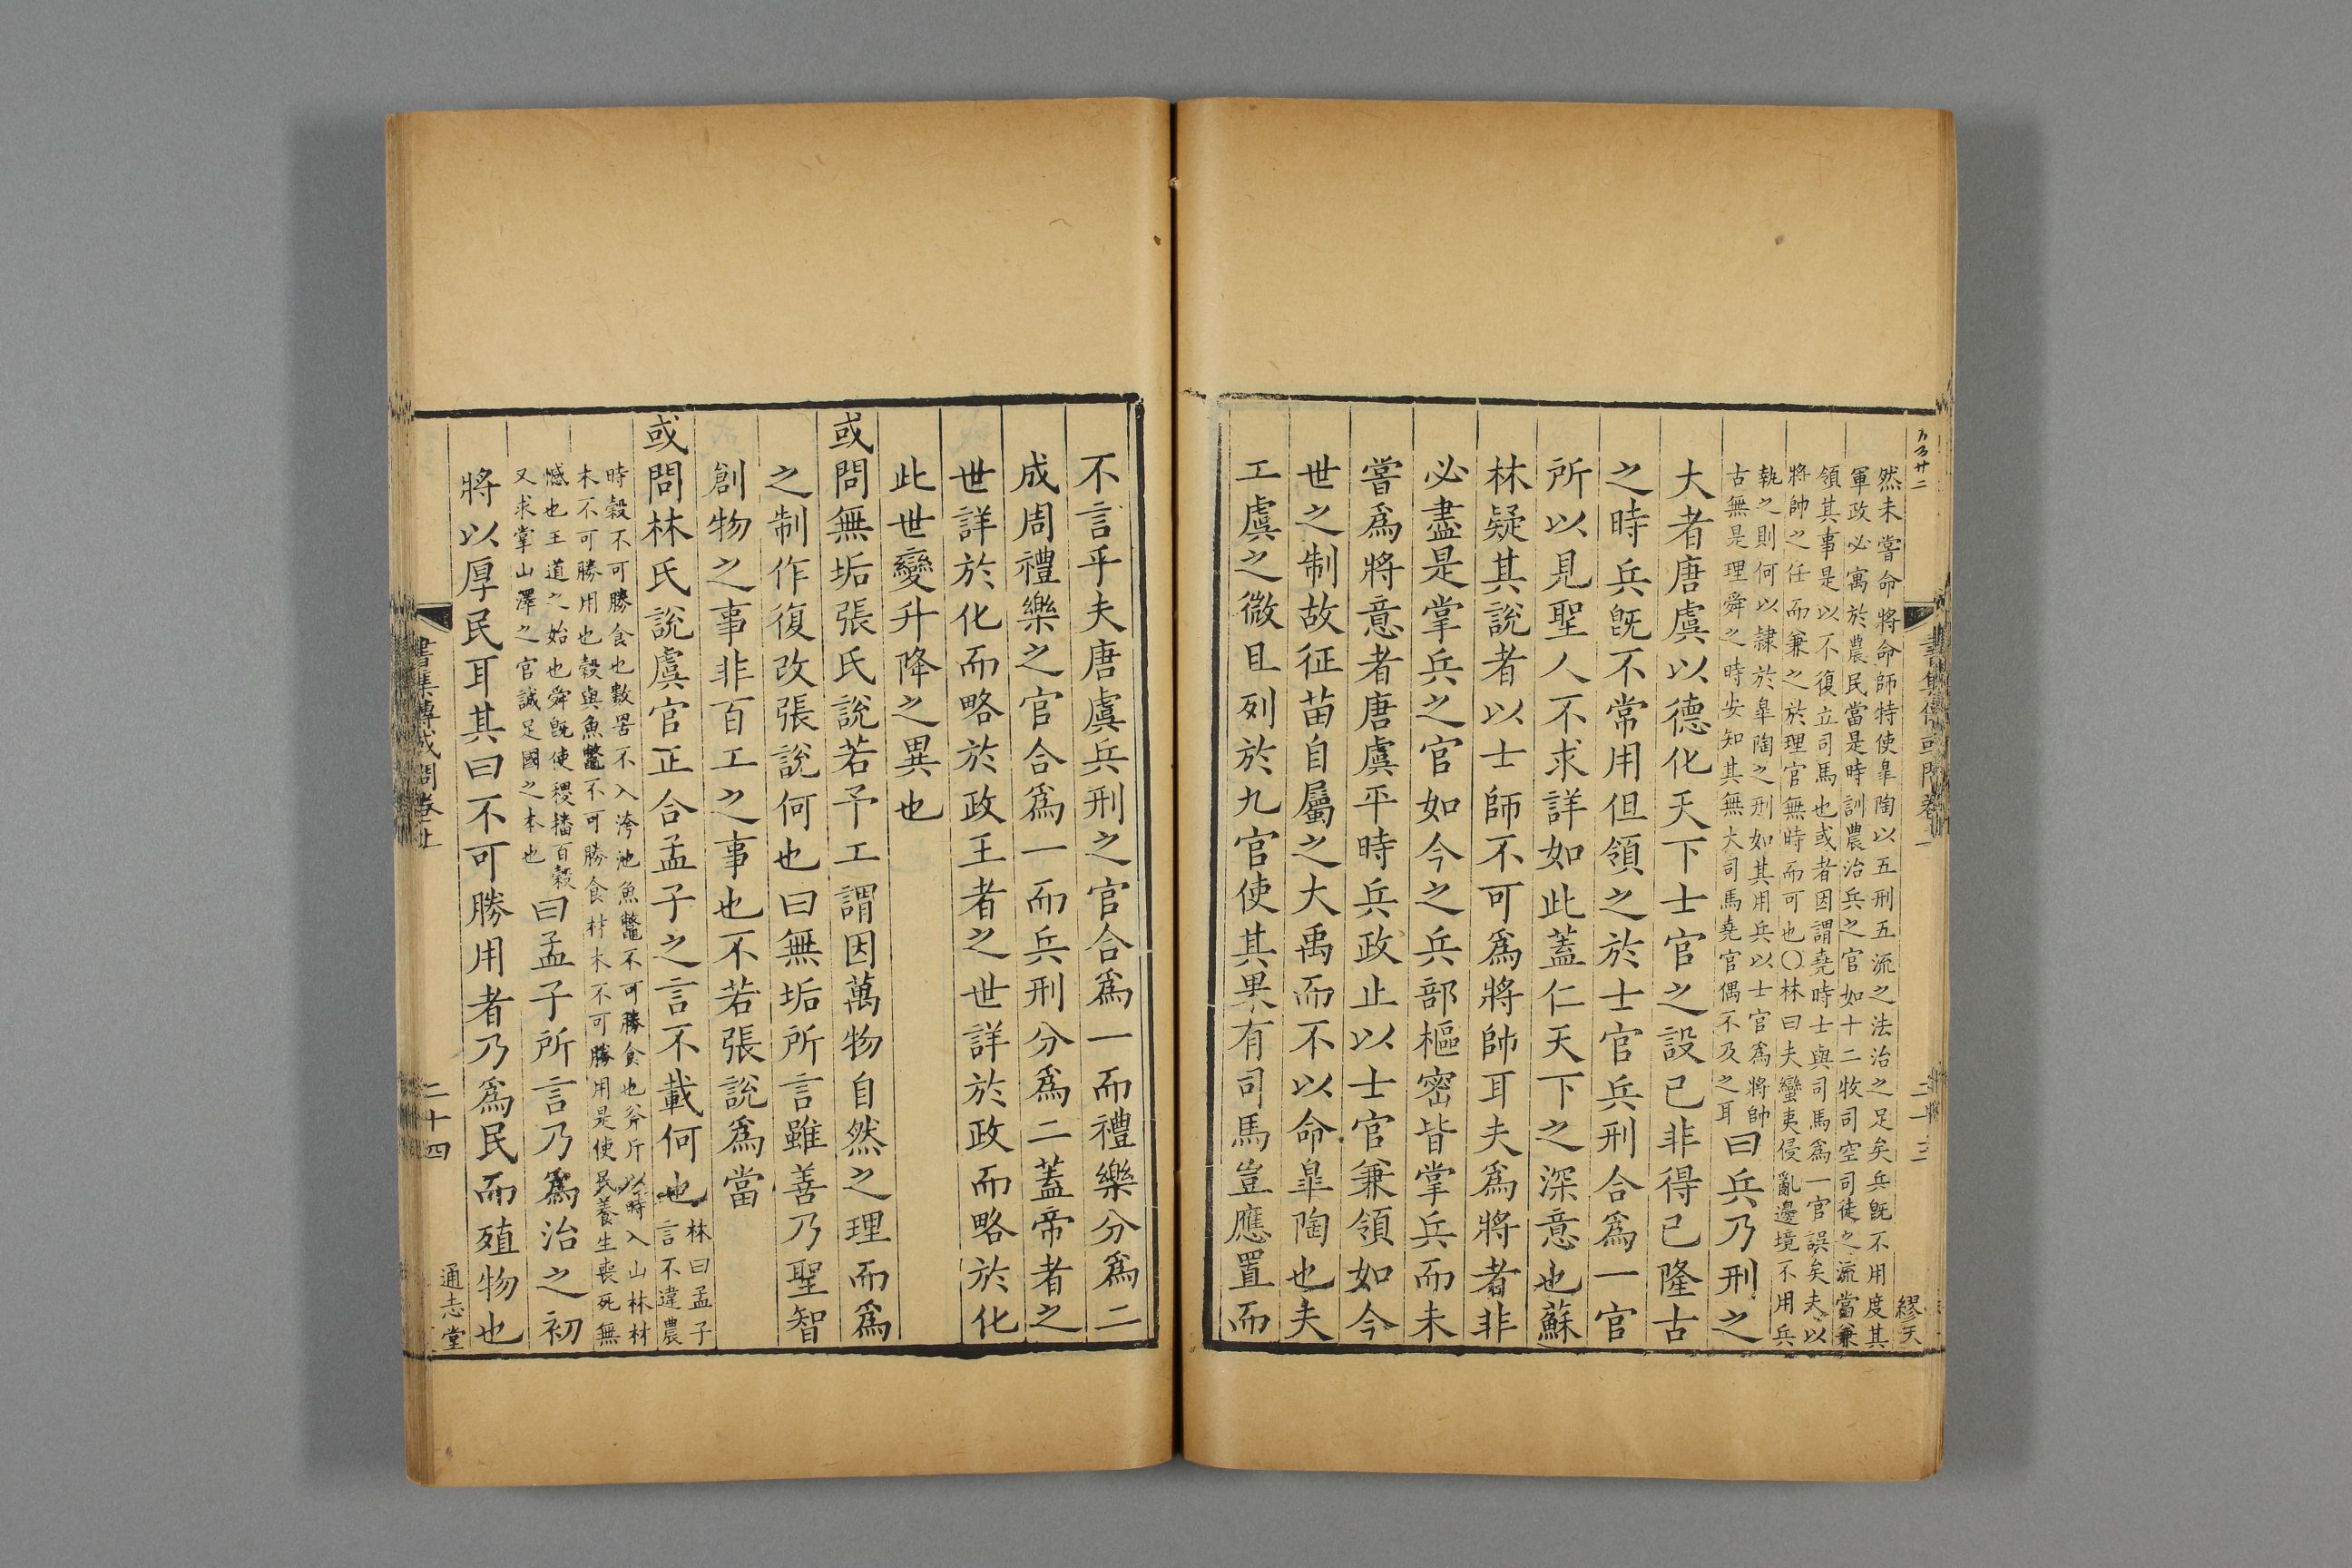 然未嘗命將命師特使皐陶以五刑五流之法治之足矣兵旣不用度其
軍政必寓於農民當是時訓農治兵之官如十二牧司空司徒之流當兼
領其事是以不復立司馬也或者因謂堯時士與司馬爲一官誤矣夫以
將帥之任而兼之於理官無時而可也〇林曰夫蠻夷侵亂邊境不用兵
執之則何以隸於皐陶之刑如其用兵以士官爲將帥
古無是理舜之時安知其無大司馬堯官偶不及之耳
曰兵乃刑之
大者唐虞以德化天下士官之設已非得已隆古
之時兵旣不常用但領之於士官兵刑合爲一官
所以見聖人不求詳如此蓋仁天下之深意也蘇
林疑其說者以士師不可爲將帥耳夫爲將者非
必盡是掌兵之官如今之兵部樞密皆掌兵而未
嘗爲將意者唐虞平時兵政止以士官兼領如今
世之制故征苗自屬之大禹而不以命皐陶也夫
工虞之微且列於九官使其果有司馬豈應置而
書集傳或問卷
二十三
繆天
不言乎夫唐虞兵刑之官合爲一而禮樂分爲二
成周禮樂之官合爲一而兵刑分爲二蓋帝者之
世詳於化而略於政王者之世詳於政而略於化
此世變升降之異也
或問無垢張氏說若予工謂因萬物自然之理而爲
之制作復改張說何也曰無垢所言雖善乃聖智
創物之事非百工之事也不若張說爲當
或問林氏說虞官正合孟子之言不載何也
林曰孟子
言不違農
時穀不可勝食也數罟不入洿池魚鼈不可勝食也斧斤以時入山林材
木不可勝用也穀與魚鼈不可勝食材木不可勝用是使民養生喪死無
憾也王道之始也舜旣使稷播百穀
又求掌山澤之官誠足國之本也
曰孟子所言乃爲治之初
將以厚民耳其曰不可勝用者乃爲民而殖物也
書集傳或問卷上
二十四
通志堂